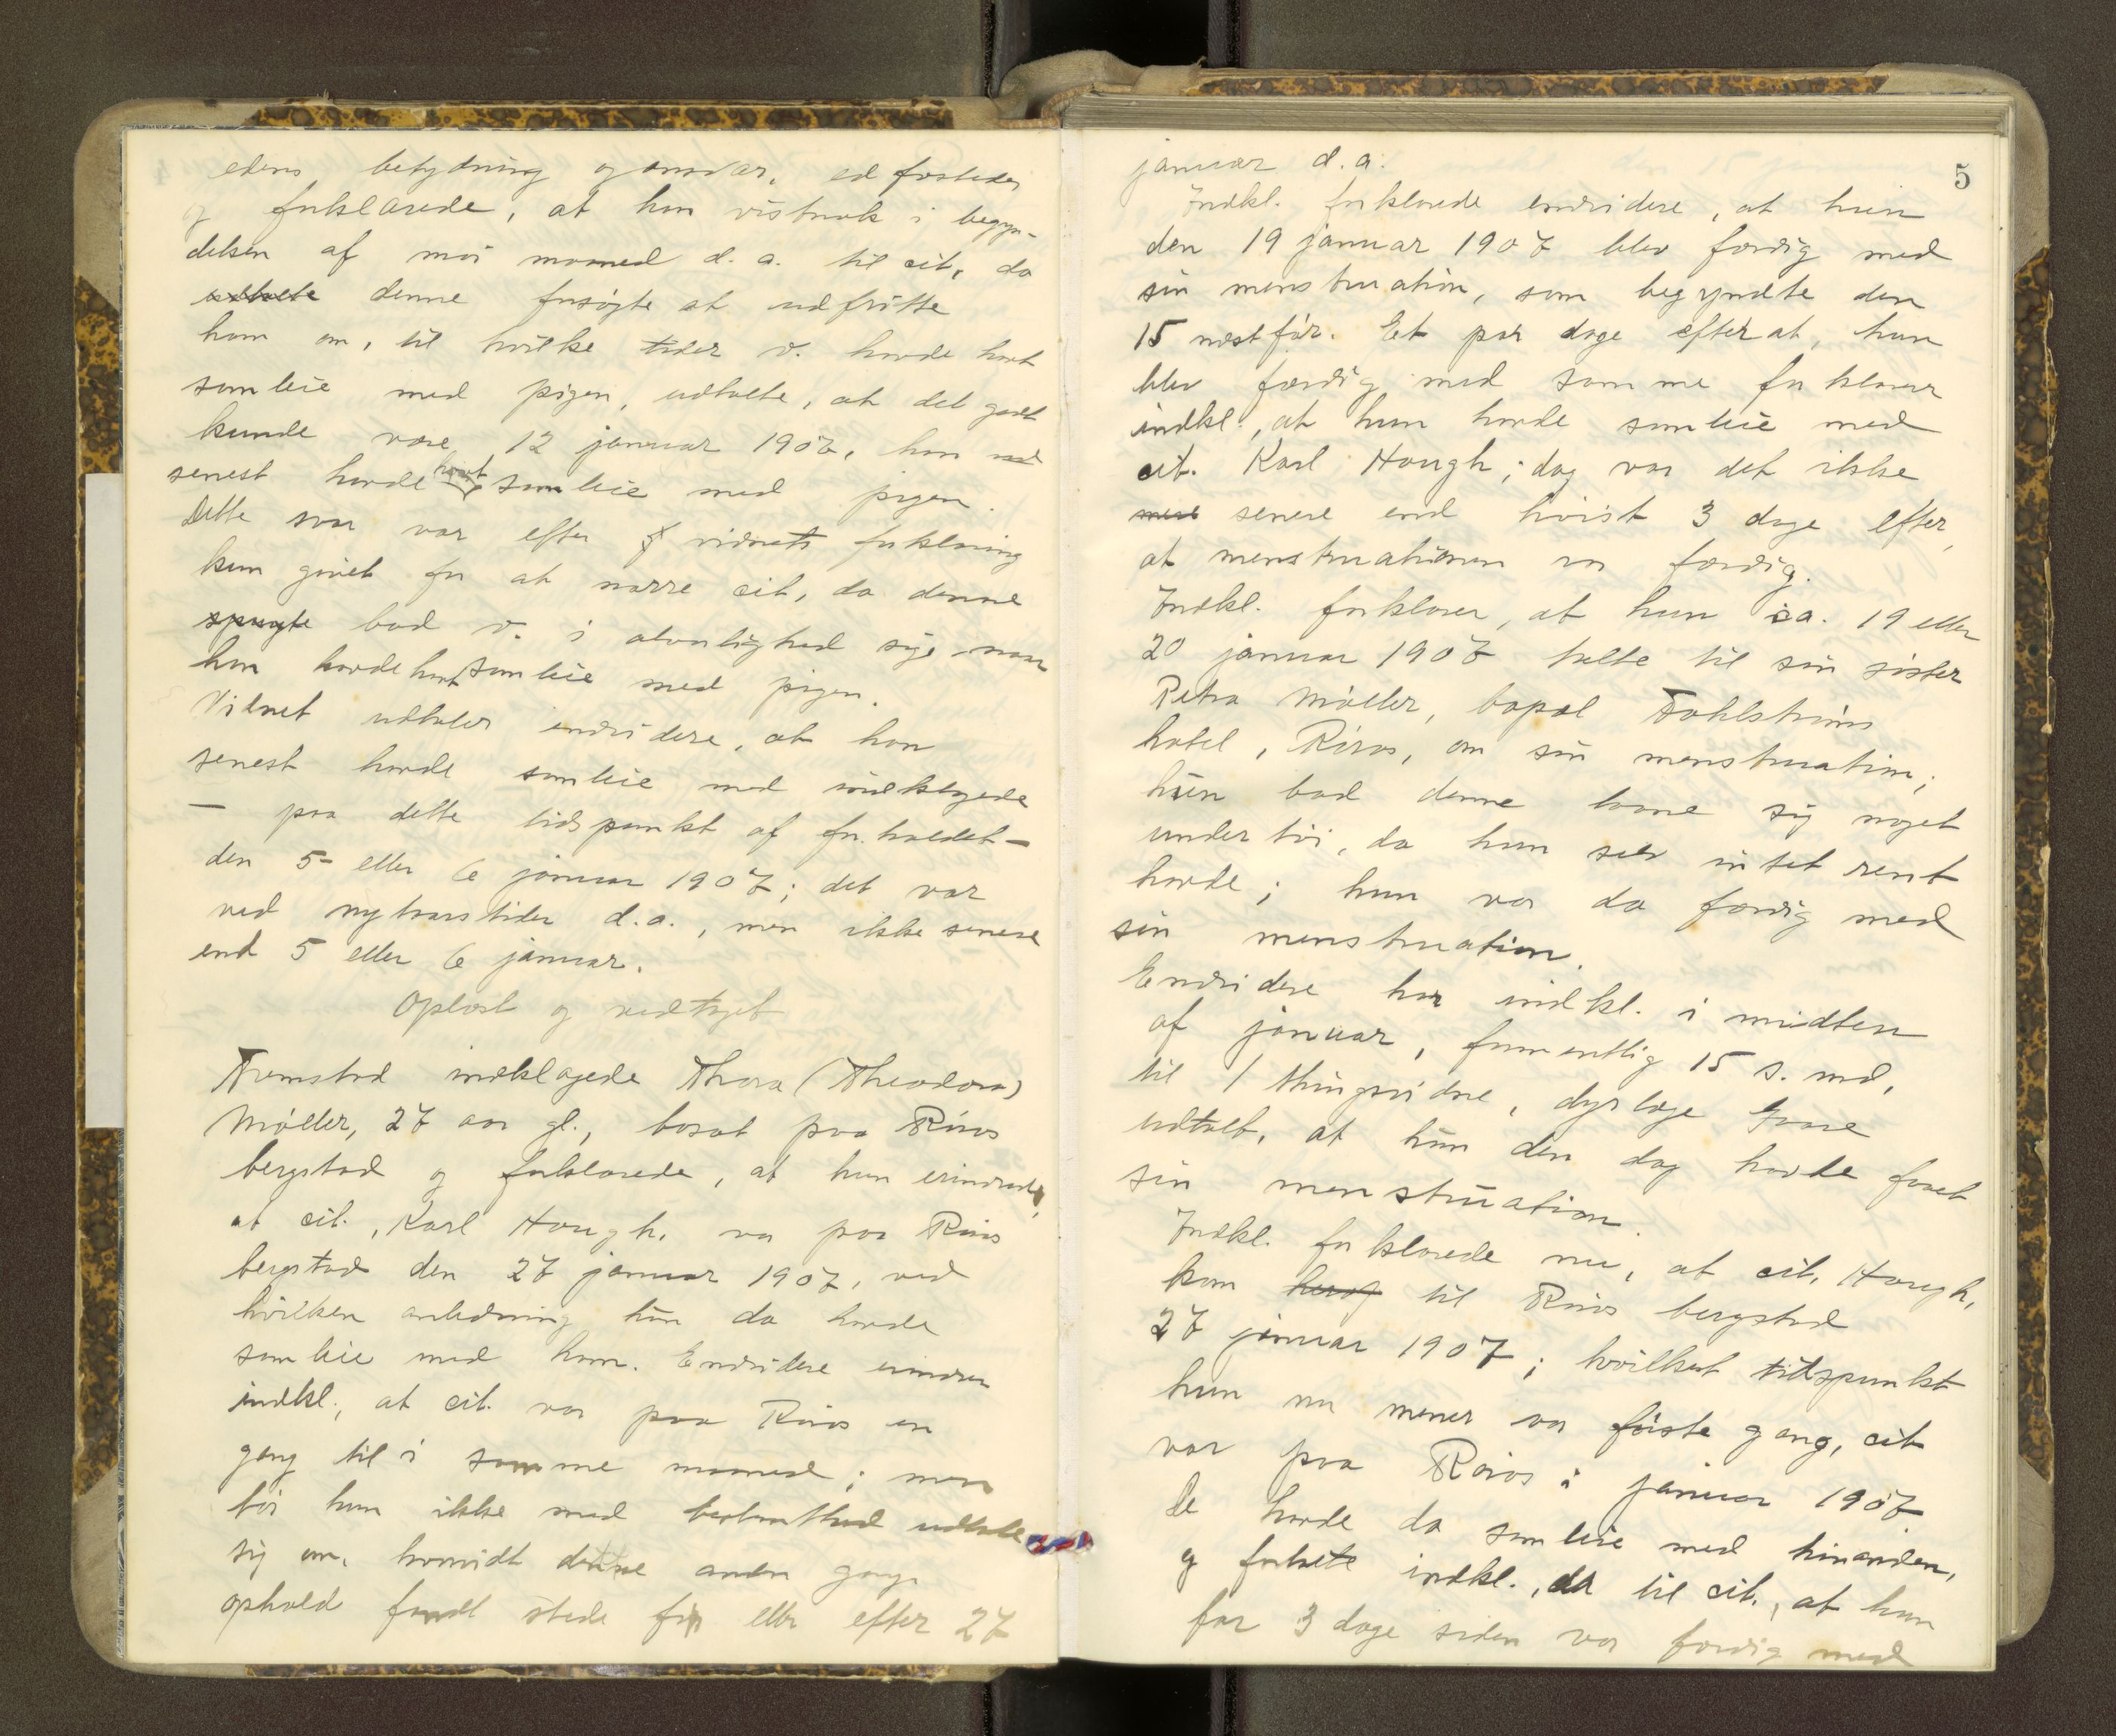 edens betydning og ansvar, ed fæstedes
og forklarede, at han vistnok i begyn-
delsen af mai maaned d. a. til cit., da
udtalte denne forsøgte at udfritte
ham om, til hvilke tider v. havde havt
samleie med pigen, udtalte, at det godt
kunde være 12 januar 1907, han
senest havde havt samleie med pigen.
Dette svar var efter vidnets forklaring
kun givet for at narre cit., da denne
spurgte bad v. i alvorlighed sige naar
han havde havt samleie med pigen.
Vidnet udtaler endvidere, at han
senest havde samleie med indklagede
– paa dette tidspunkt af forholdet –
den 5 eller 6 januar 1907; det var
ved nytaarstider d. a., men ikke senere
end 5 eller 6 januar.
Oplæst og vedtaget
Fremstod indklagede Thora (Theodora)
Møller, 27 aar gl., bosat paa Røros
bergstad og forklarede, at hun erindrede,
at cit., Karl Hough, var paa Røros
bergstad den 27 januar 1907, ved
hvilken anledning hun da havde
samleie med ham. Endvidere erindrer
indkl., at cit. var paa Røros en
gang til i samme maaned; men
tør hun ikke med bestemthed udtale
sig om, hvorvidt denne anden gangs
ophold fandt stede før eller efter 27
5
januar d. a.
Indkl. forklarede endvidere, at hun
den 19 januar 1907 blev færdig med
sin menstruation, som begyndte den
15 næstfør. Et par dage efterat, hun
blev færdig med samme forklarer
indkl., at hun havde samleie med
cit. Karl Hough; dog var det ikke
mere senere end høist 3 dage efter,
at menstruationen var færdig.
Indkl. forklarer, at hun ca. 19 eller
20 januar 1907 talte til sin søster
Petra Møller, bopæl Fahlstrøms
hotel, Røros, om sin menstruation;
hun bad denne laane sig noget
undertøi, da hun selv intet rent
havde; hun var da færdig med
sin menstruation.
Endvidere har indkl. i midten
af januar, formentlig 15 s. md.,
til 1 thingsvidne, dyrlæge
udtalt, at hun den dag havde faaet
sin menstruation.
Indkl. forklarede nu, at cit. Hough,
kom til Røros bergstad
27 januar 1907; hvilket tidspunkt
hun nu mener var første gang, cit
var paa Røros i januar 1907
De havde da samleie med hinanden,
og fortalte indkl., da til cit., at hun
for 3 dage siden var færdig med